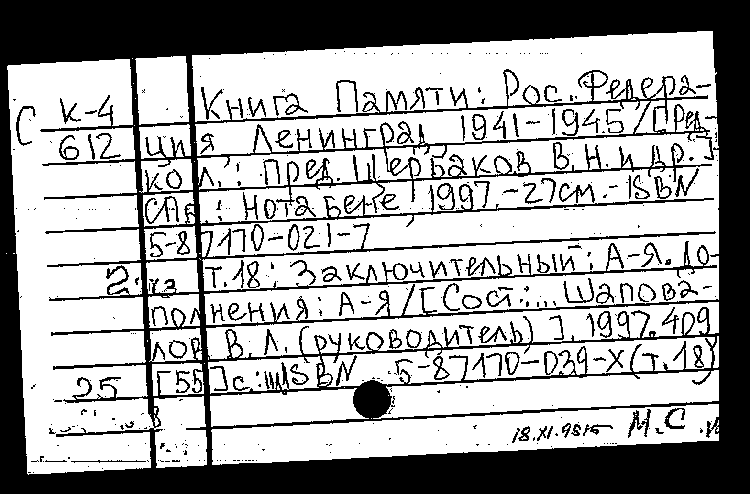 С К-4 Книга Памяти: Рос. Федера-
612 ция Ленинград, 1941-1945/[Ред-
кол.: пред. Щербаков В.Н. и др.]
СПб.: Нота Бене, 1997.-27см.-ISBN
5-87170-021-7
2 т.18: Заключительный: А-Я. До-
полнения: А-Я/[Сост.:... Шапова-
лов В.Л. (руководитель)], 1997. 409,
25 [55]с.: ISBN 5-87170-039-X(т.18)
18.XI.98 М.С.